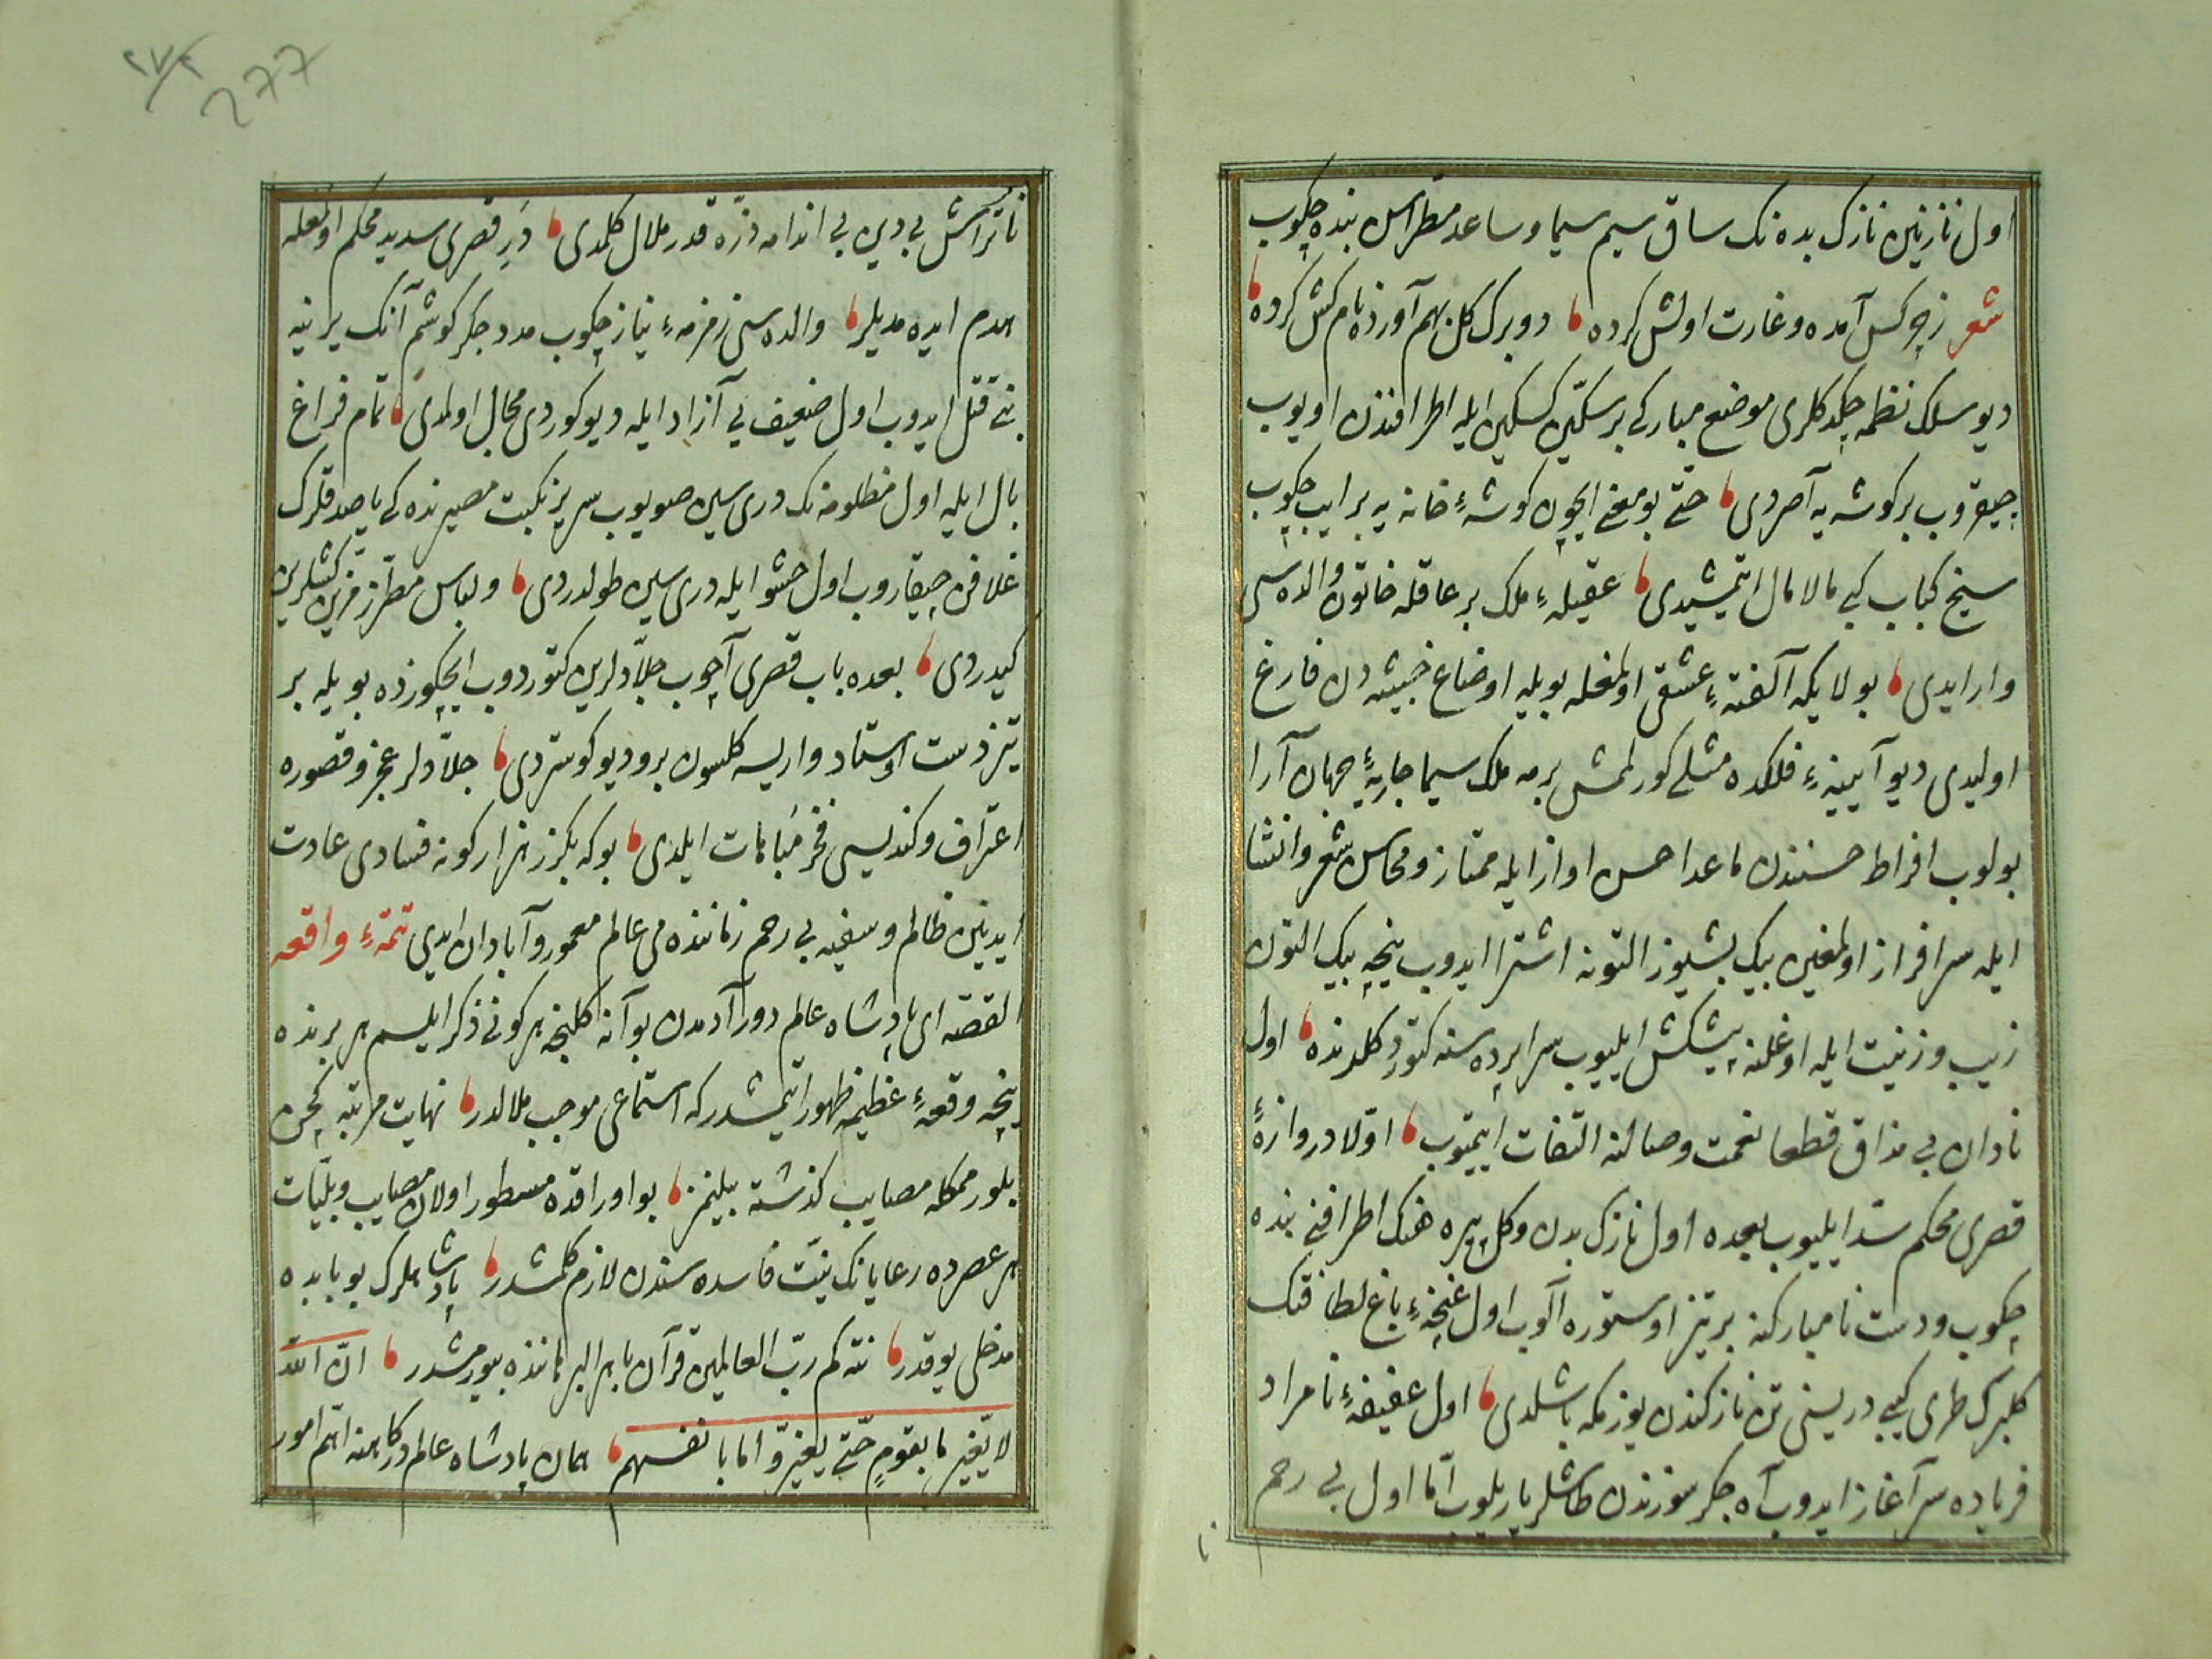 اول نازنین نازک بدنک ساق سیم سیما و ساعد مطراسن بنده چکوب
شعر زچرکس آمده و غارت اولش کرده دو برک کل بهم آورده نام کش کرده
دیو سلک نظمه چکدکلری موضع مبارکی بر سکین کسکین ایله اطرافندن اویوب
چیقروب بر کوشه یه آصردی حتی بو معنی ایچون کوشهٔ خانه یه بر ایپ چکوب
سیخ کباب کبی مالامال ایتمشیدی عقیلهٔ ملک بر عاقله خاتون والده سی
وار ایدی بولایکه آلفتهٔ عشق اولمغله بویله اوضاع خبیثه دن فارغ
اولیدی دیو آیینهٔ فلکده مثلی کورلمش بر مه ملک سیما جاریهٔ جهان آرا
بولوب افراط حسنندن ماعدا حسن اواز ایله ممتاز و محاسن شعر و انشا
ایله سرافراز اولمغین بیک بشیوز التونه اشترا ایدوب نیجه بیک التون
زیب و زینت ایله اوغلنه پیشکش ایلیوب سراپرده سنه کتوردکلرنده اول
نادان بی مذاق قطعا نعمت وصالنه التفات ایتمیوب اولا دروازهٔ
قصری محکم سد ایلیوب بعده اول نازک بدن و کل پیرهنک اطرافنی بنده
چکوب و دست نا مبارکنه بر تیز اوستوره آلوب اول غنچهٔ باغ لطافتک
کلبرک طری کبی دریسنی تن نازکندن یوزمکه باشلدی اول عفیفهٔ نامراد
فریاده سر آغاز ایدوب آه جکر سوزندن طاشلر یاریلوب اما اول بی رحم
نا
277
ناتراش بی دین بی اندامه ذره قدر ملال کلمدی در قصری سدید محکم اولمغله
هدم ایده مدیلر والده سی زمزمهٔ نیاز چکوب مدد جکر کوشم آنک یرینه
بنی قتل ایدوب اول ضعیفه یی آزاد ایله دیو کوردی مجال اولمدی تمام فراغ
بال ایله اول مظلومه نک دریسین صویوب سریر نکبت مصیرنده کی یاصدقلرک
غلافن چیقاروب اول حشو ایله دریسین طولدردی و لباس مطرز مزین کشلرین
کیدردی بعده باب قصری آچوب جلادلرین کتوردوب ایچکوزده بویله بر
تیز دست اوستاد واریسه کلسون برو دیو کوستردی جلادلر عجز و قصوره
اعتراف و کندیسی فخر مباهات ایلدی بو که بکزر هزار کونه فسادی عادت
ایدنین ظالم و سفیه بی رحم زماننده می عالم معمور و آبادان ایدی تتمهٔ واقعه
القصه ای پادشاه عالم دور آدمدن بو آنه کلنجه هر کونی ذکر ایلسم هر برنده
نیجه وقعهٔ عظیمه ظهور ایتمشدر که استماعی موجب ملالدر نهایت مرتبه کچن
بلور ممکله مصایب کذشته بیلنمز بو اوراقده مسطور اولان مصایب و بلیات
هر عصرده رعایانک نیت فاسده سندن لازم کلمشدر پادشاهلرک بو بابده
مدخلی یوقدر نته کم رب العالمین قرآن باهر البرهاننده بیورمشدر ان الله
لا یغیر ما بقوم حتی یغیروا ما بانفسهم همان پادشاه عالم درکاهنه اهم امور